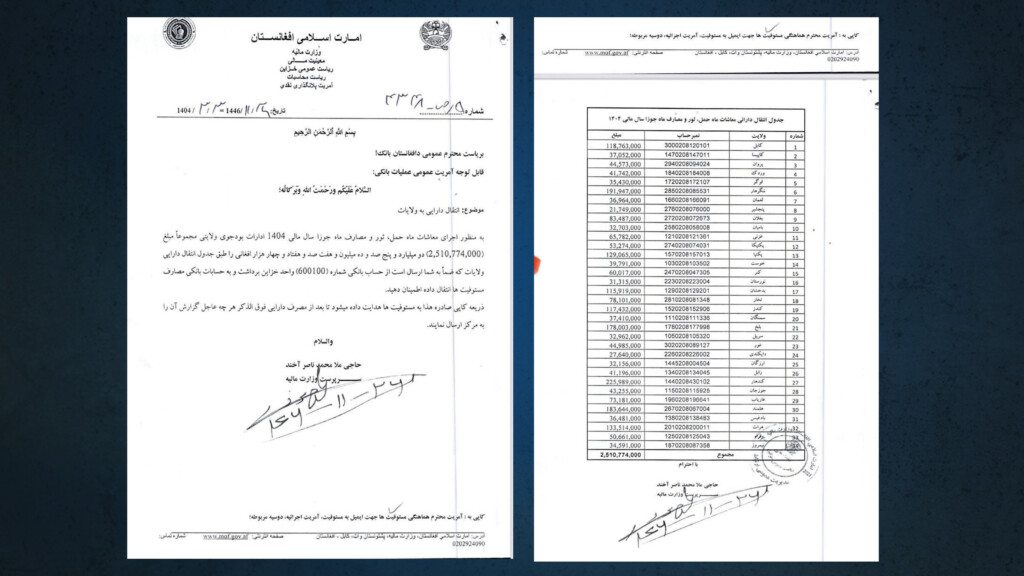 امارت اسلامی افغانستان
وزارت مالیه
معینیت مالی
ریاست عمومی خزاین
ریاست محاسبات
آمریت پلانگذاری نقدی
شماره
تاریخ: 1446/11/ = 1404/3/
بِسْمِ اللَّهِ الرَّحْمَنِ الرَّحِيمِ
بریاست محترم عمومی دافغانستان بانک!
قابل توجه آمریت عمومی عملیات بانکی:
السَّلَامُ عَلَيْكُم وَرَحْمَتُ اللهِ وَبَرَكَاتُه!
موضوع: انتقال دارایی به ولایات
به منظور اجرای معاشات ماه حمل، ثور و مصارف ماه جوزا سال مالی 1404 ادارات بودجوی ولایتی مجموعاً مبلغ
(2,510,774,000) دو میلیارد و پنج صد و ده میلیون و هفت صد و هفتاد و چهار هزار افغانی را طبق جدول انتقال دارایی
ولایات که ضماً به شما ارسال است از حساب بانکی شماره (600100) واحد خزاین برداشت و به حسابات بانکی مصارف
مستوفیت ها انتقال داده اطمینان دهید.
ذریعه کاپی صادره هذا به مستوفیت ها هدایت داده میشود تا بعد از مصرف دارایی فوق الذکر هر چه عاجل گزارش آن را
به مرکز ارسال نمایند.
والسلام
حاجی ملا محمد ناصر آخند
سرپرست وزارت مالیه
کاپی به : آمریت محترم هماهنگی مستوفیت ها جهت ایمیل به مستوفیت، آمریت اجرائیه، دوسیه مربوطه!
آدرس: امارت اسلامی افغانستان، وزارت مالیه، پشتونستان وات، کابل ، افغانستان صفحه انترنتی: www.mof.gov.af شماره تماس:
0202924090
کاپی به : آمریت محترم هماهنگی مستوفیت ها جهت ایمیل به مستوفیت، آمریت اجرائیه، دوسیه مربوطه!
آدرس: امارت اسلامی افغانستان، وزارت مالیه، پشتونستان وات، کابل ، افغانستان صفحه انترنتی: www.mof.gov.af شماره تماس:
0202924090
جدول انتقال دارائی معاشات ماه حمل، ثور و مصارف ماه جوزا سال مالی ۱۴۰۴
شماره ولایت نمبرحساب مبلغ
1 کابل 3000208120101 118,763,000
2 کاپیسا 1470208147011 37,052,000
3 پروان 2940208094024 44,573,000
4 وردک 1840208184008 41,742,000
5 لوگر 1720208172107 35,430,000
6 ننگرهار 2850208085531 191,947,000
7 لغمان 1660208166091 36,964,000
8 پنجشیر 2760208076000 21,749,000
9 بغلان 2720208072673 83,487,000
10 بامیان 2580208058008 32,703,000
11 غزنی 1210208121361 65,782,000
12 پکتیکا 2740208074031 53,274,000
13 پکتیا 1570208157013 129,065,000
14 خوست 1030208103502 39,791,000
15 کنر 2470208047305 60,017,000
16 نورستان 2230208223004 31,315,000
17 بدخشان 1290208129201 115,919,000
18 تخار 2810208081348 78,101,000
19 کندز 1520208152906 117,432,000
20 سمنگان 1110208111336 37,410,000
21 بلخ 1780208177998 178,003,000
22 سرپل 1050208105320 32,962,000
23 غور 3020208089127 44,985,000
24 دایکندی 2260208226002 27,640,000
25 ارزگان 1445208004504 32,156,000
26 زابل 1340208134045 41,196,000
27 کندهار 1440208430102 225,989,000
28 جوزجان 1150208115925 43,255,000
29 فاریاب 1960208196541 73,181,000
30 هلمند 2670208067004 183,644,000
31 بادغیس 1380208138483 36,481,000
32 هرات 2010208200011 133,514,000
33 1250208125043 50,661,000
نیمروز 1870208087358 34,591,000
مجموع 2,510,774,000
با احترام
حاجی ملا محمد ناصر آخند
سرپرست وزارت مالیه